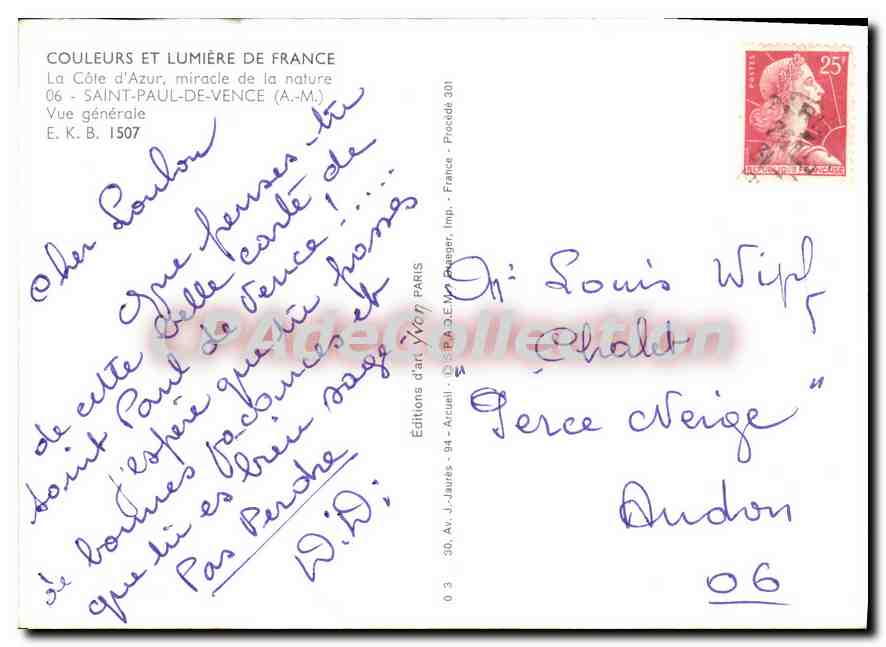 COULEURS ET LUMIÈRE DE FRANCE
La Côte d'Azur, miracle de la nature
06 - SAINT-PAUL-DE-VENCE (A.-M.)
Vue générale
E. K. B. 1507
Cher Loulou
que penses-tu
de cette belle carte de
Saint Paul de Vence!.....
J'espère que tu passes
de bonnes vacances et
que tu es bien sage
Pas Perdre
D.D.
Éditions d'art Yvon PARIS
30, Av. J.-Jaurès - 94 - Arcueil - © S.P.A.D.E.M. - Draeger, Imp. - France - Procédé 301
0 3
POSTES
25F
REPUBLIQUE FRANÇAISE
Mr: Louis Wipf
Chalet
"Perce Neige"
Andon
06
CPAdeCollection